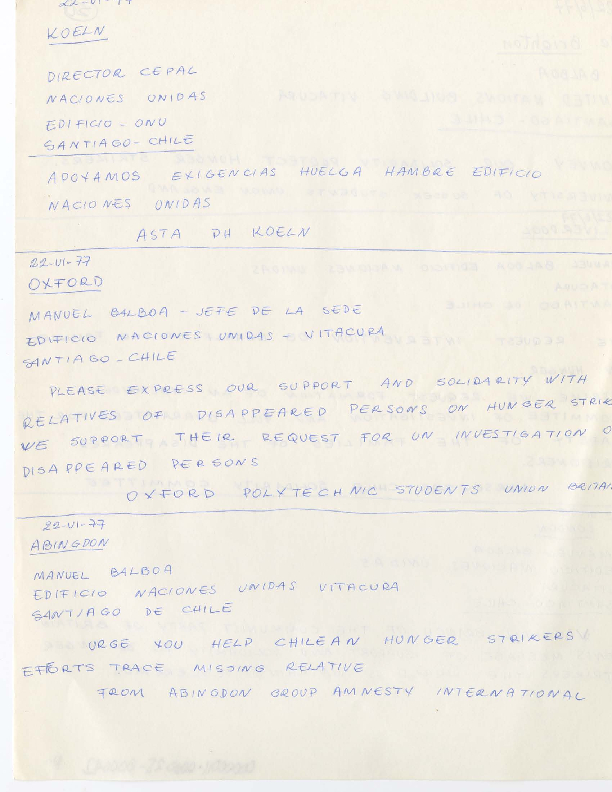 22-VI-77
KOELN
DIRECTOR CEPAL
NACIONES UNIDAS
EDIFICIO - ONU
SANTIAGO - CHILE
APOYAMOS EXIGENCIAS HUELGA HAMBRE EDIFICIO
NACIONES UNIDAS
ASTA PH KOELN
22-VI-77
OXFORD
MANUEL BALBOA - JEFE DE LA SEDE
EDIFICIO NACIONES UNIDAS - VITACURA
SANTIAGO - CHILE
PLEASE EXPRESS OUR SUPPORT AND SOLIDARITY WITH
RELATIVES OF DISAPPEARED PERSONS ON HUNGER STRIK
WE SUPPORT THEIR REQUEST FOR UN INVESTIGATION O
DISAPPEARED PERSONS
OXFORD POLYTECHNIC STUDENTS UNION BRITAI
22-VI-77
ABINGDON
MANUEL BALBOA
EDIFICIO NACIONES UNIDAS VITACURA
SANTIAGO DE CHILE
URGE YOU HELP CHILEAN HUNGER STRIKERS
EFFORTS TRACE MISSING RELATIVE
FROM ABINGDON GROUP AMNESTY INTERNATIONAL